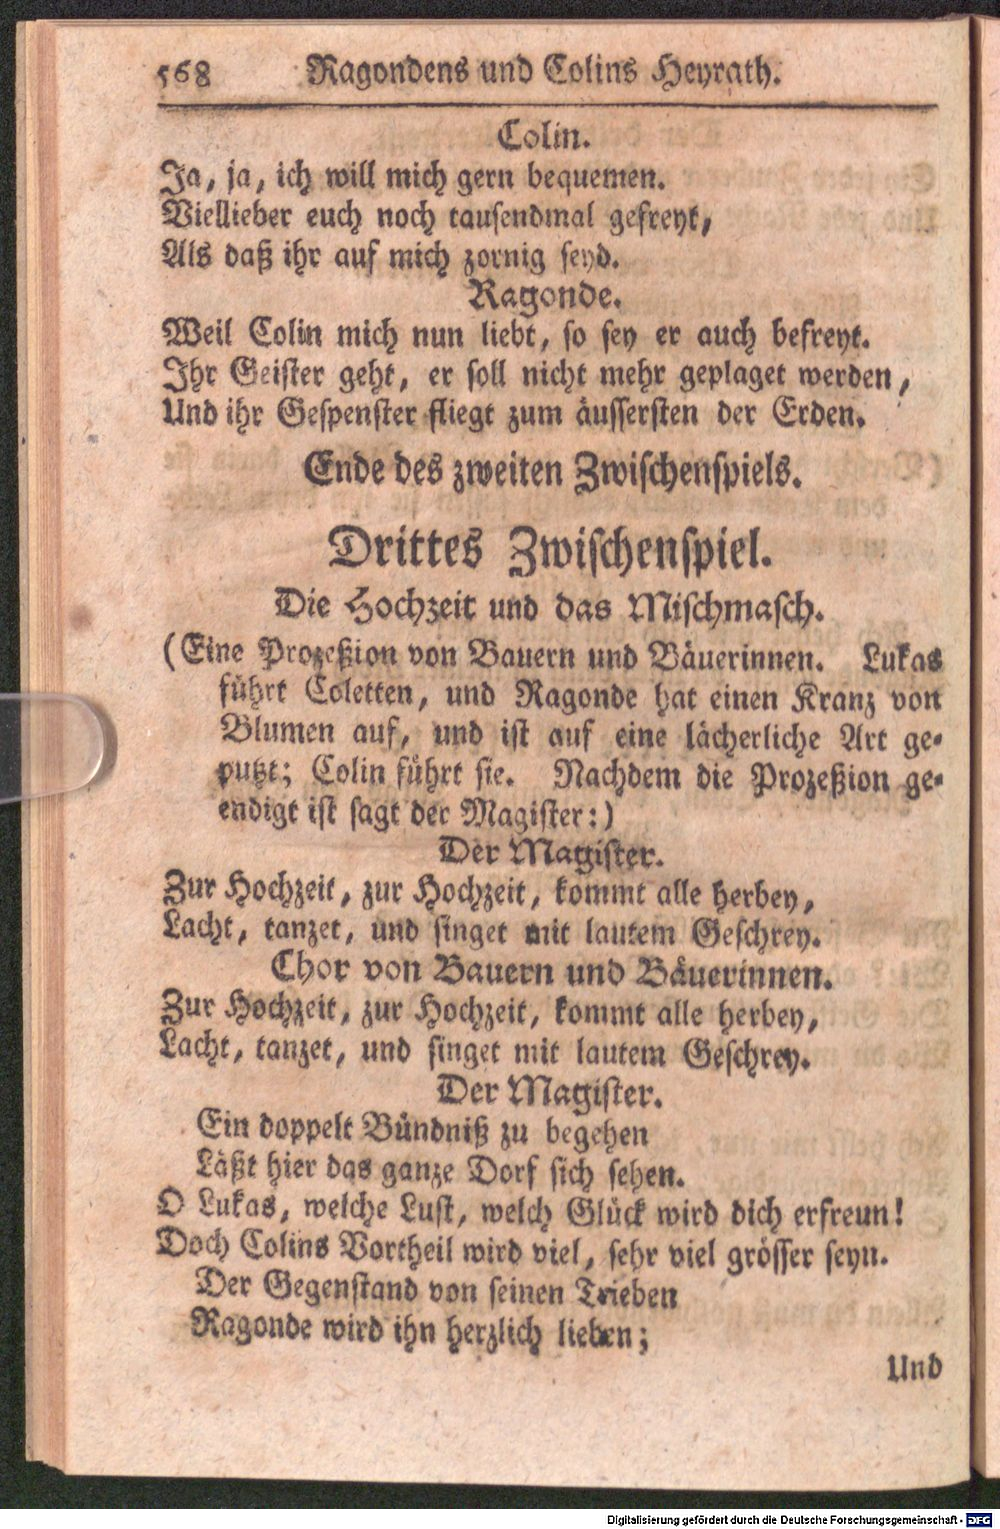 568 Ragondens und Colins Heyrath.
Colin.
Ja, ja, ich will mich gern bequemen.
Viellieber euch noch tausendmal gefreyt,
Als daß ihr auf mich zornig seyd.
Ragonde.
Weil Colin mich nun liebt, so sey er auch befreyt.
Ihr Geister geht, er soll nicht mehr geplaget werden,
Und ihr Gespenster fliegt zum äussersten der Erden.
Ende des zweiten Zwischenspiels.
Drittes Zwischenspiel.
Die Hochzeit und das Mischmasch.
(Eine Prozeßion von Bauern und Bäuerinnen. Lukas
führt Coletten, und Ragonde hat einen Kranz von
Blumen auf, und ist auf eine lächerliche Art ge-
putzt; Colin führt sie. Nachdem die Prozeßion ge-
endigt ist sagt der Magister:)
Der Magister.
Zur Hochzeit, zur Hochzeit, kommt alle herbey,
Lacht, tanzet, und singet mit lautem Geschrey.
Chor von Bauern und Bäuerinnen.
Zur Hochzeit, zur Hochzeit, kommt alle herbey,
Lacht, tanzet, und singet mit lautem Geschrey.
Der Magister.
Ein doppelt Bündniß zu begehen
Läßt hier das ganze Dorf sich sehen.
O Lukas, welche Lust, welch Glück wird dich erfreun!
Doch Colins Vortheil wird viel, sehr viel grösser seyn.
Der Gegenstand von seinen Trieben
Ragonde wird ihn herzlich lieben;
Und
Digitalisierung gefördert durch die Deutsche Forschungsgemeinschaft - DFG